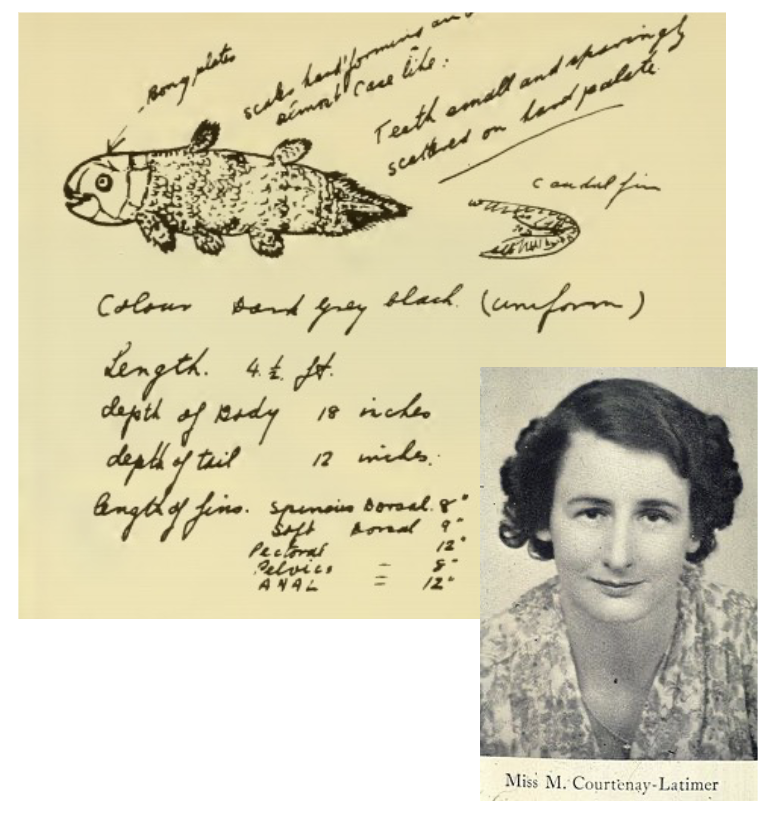 Bony plates
scales hard forming an
almost case like:
Teeth small and sparingly
scattered on hard palate
Caudal fin
Colour Dark grey black. (uniform)
Length. 4.½ ft.
depth of Body 18 inches
depth of tail 12 inches.
length of fins. Spinous Dorsal. 8"
Soft Dorsal 9"
Pectoral 12"
Pelvics = 8"
ANAL = 12"
Miss M. Courtenay-Latimer